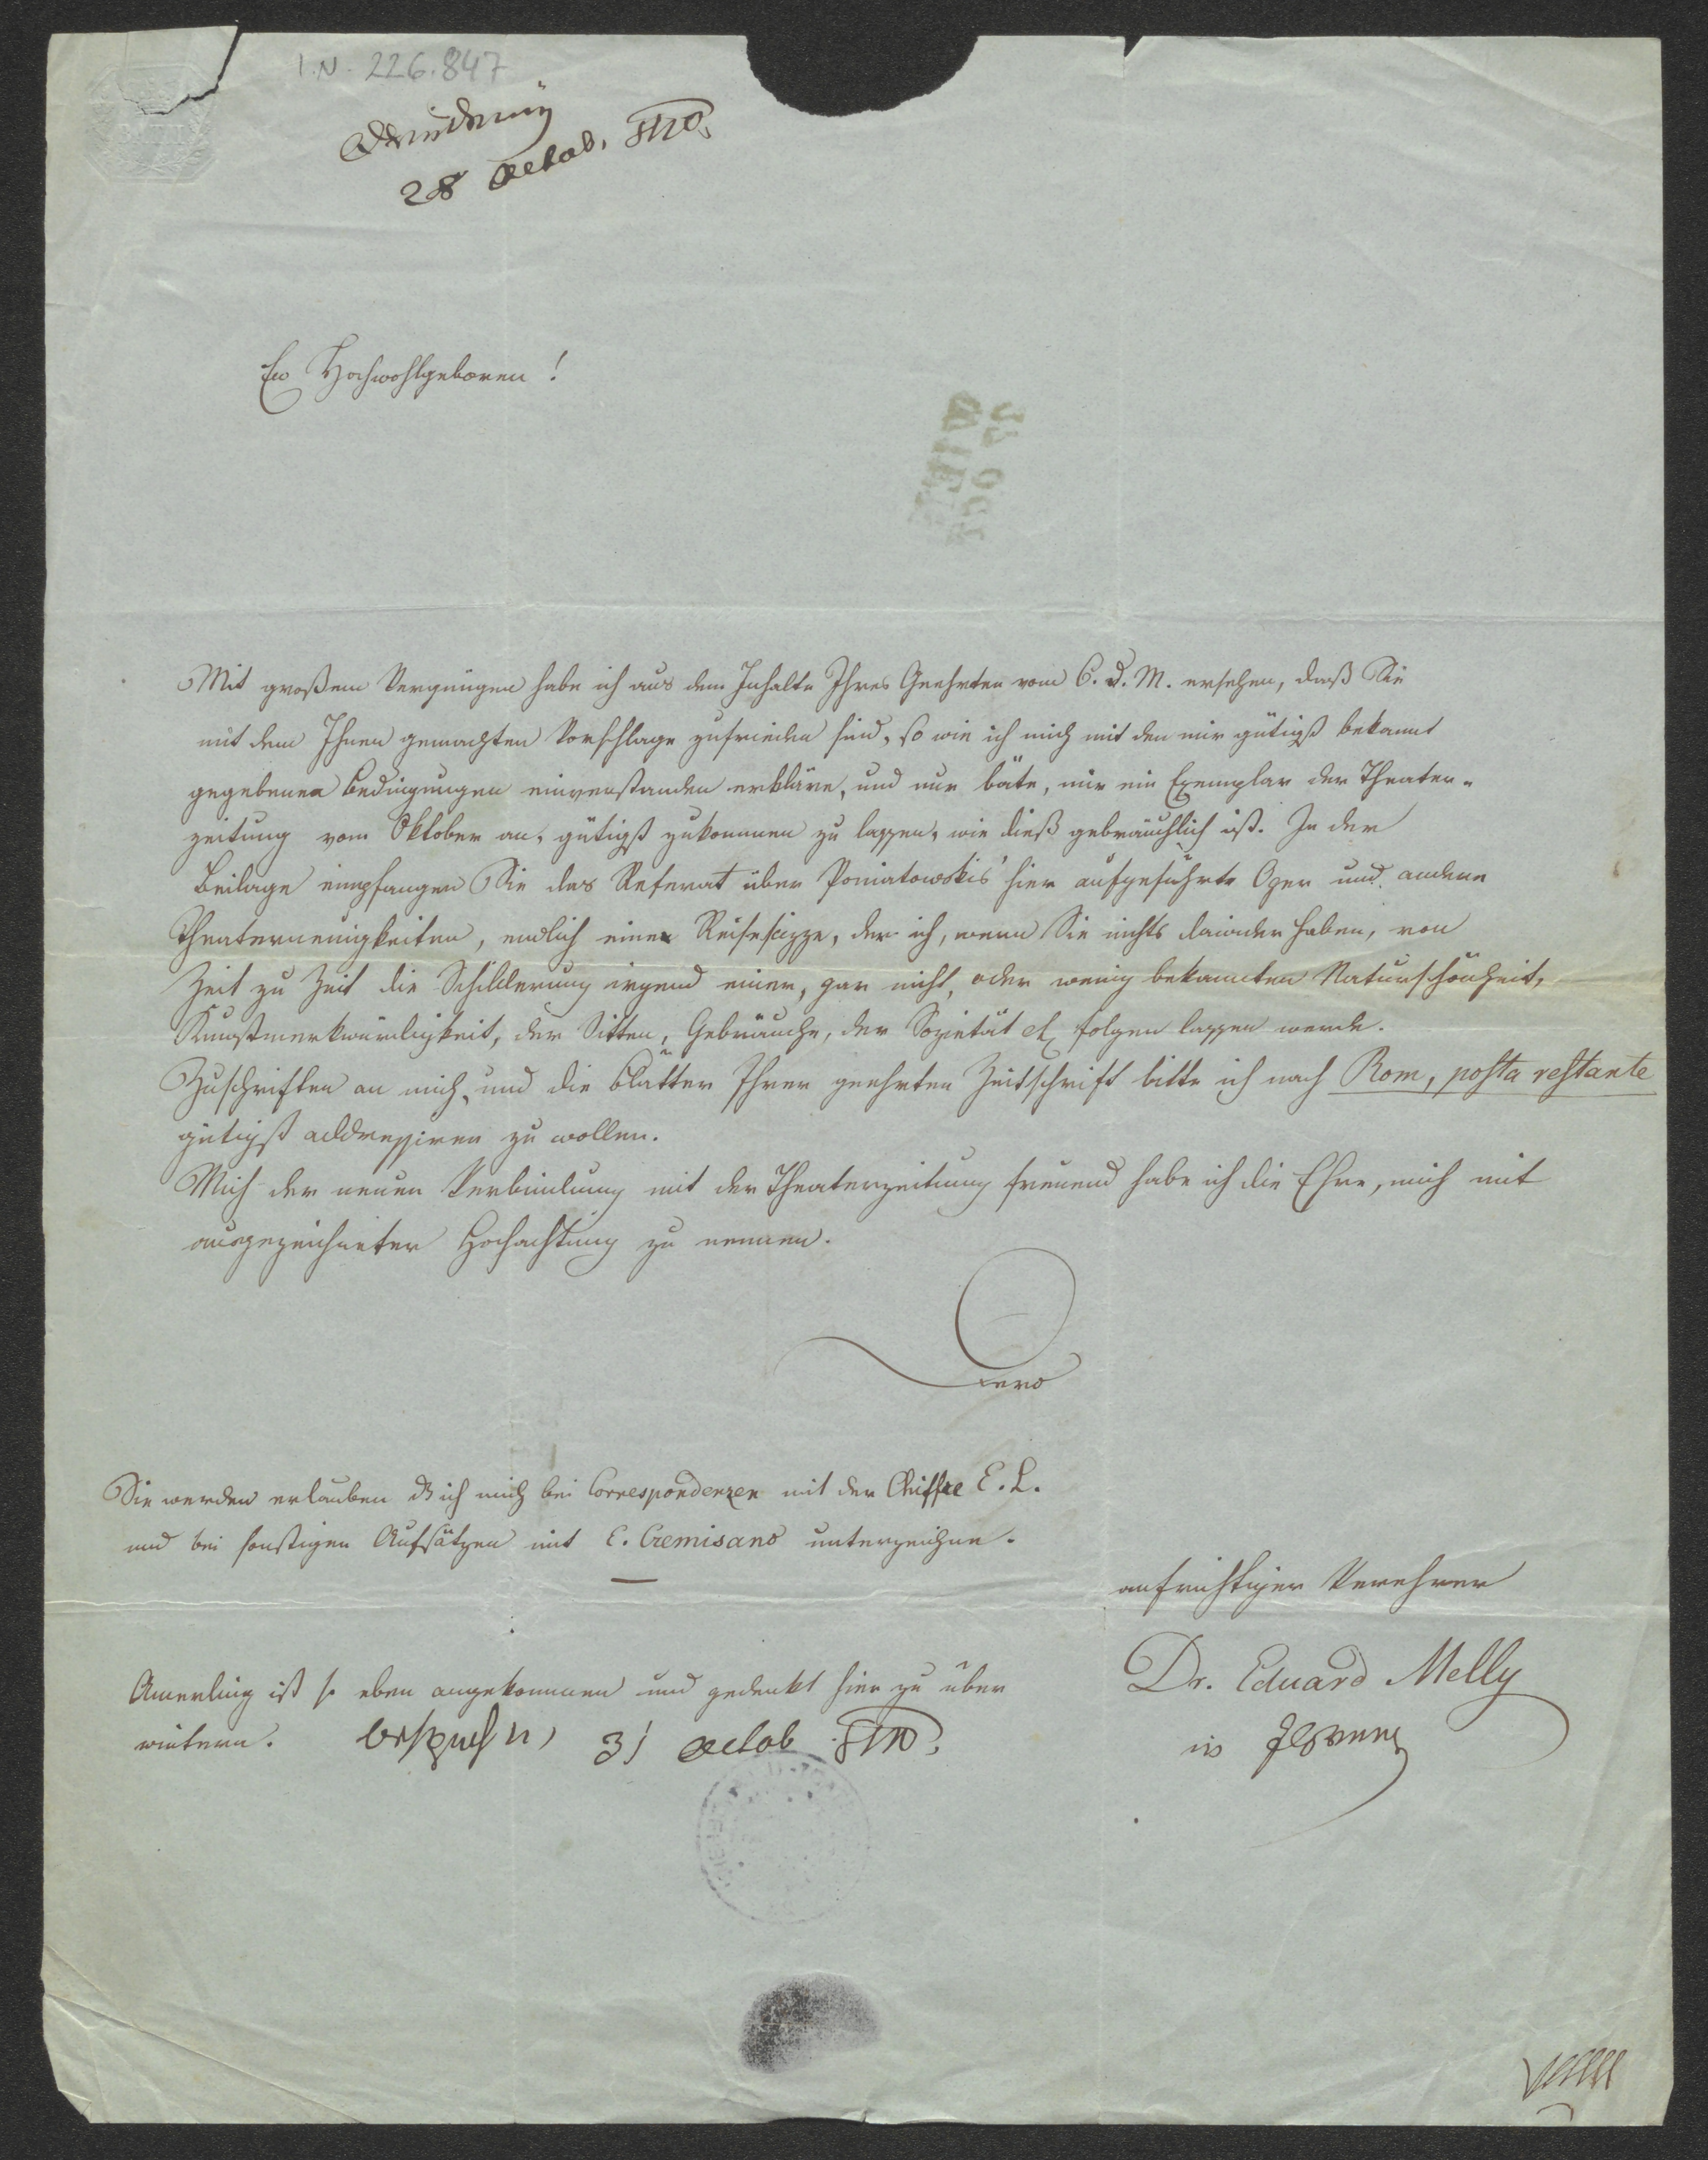 I.N. 226.847
28 Octob. 840.
Ew Hochwohlgeboren!
Mit großem Vergnügen habe ich aus dem Inhalte Ihres Geehrten vom 6. d. M. ersehen, daß Sie
mit dem Ihnen gemachten Vorschlage zufrieden sind, so wie ich mich mit den mir gütigst bekannt
gegebenen Bedingungen einverstanden erkläre, und nur bäte, mir ein Exemplar der Theater-
zeitung vom Oktober an, gütigst zukommen zu lassen, wie dieß gebräuchlich ist. In der
Beilage empfangen Sie das Referat über Poniatowskis' hier aufgeführte Oper und andere
Theaterneuigkeiten, endlich eine Reisescizze, der ich, wenn Sie nichts dawider haben, von
Zeit zu Zeit die Schilderung irgend einer, gar nicht, oder wenig bekannten Naturschönheit,
Kunstmerkwürdigkeit, der Sitten, Gebräuche, der Sozietät etc folgen lassen werde.
Zuschriften an mich, und die Blätter Ihrer geehrten Zeitschrift bitte ich nach Rom, posta restante
gütigst addressiren zu wollen.
Mich der neuen Verbindung mit der Theaterzeitung freuend habe ich die Ehre, mich mit
ausgezeichneter Hochachtung zu nennen.
Dero
Sie werden erlauben dß ich mich bei Correspondenzen mit der Chiffre E. L.
und bei sonstigen Aufsätzen mit E. Cremisano unterzeichne.
aufrichtiger Verehrer
Dr. Eduard Melly
in Florenz
Amerling ist so eben angekommen und gedenkt hier zu über
wintern. 31 Octob 840.